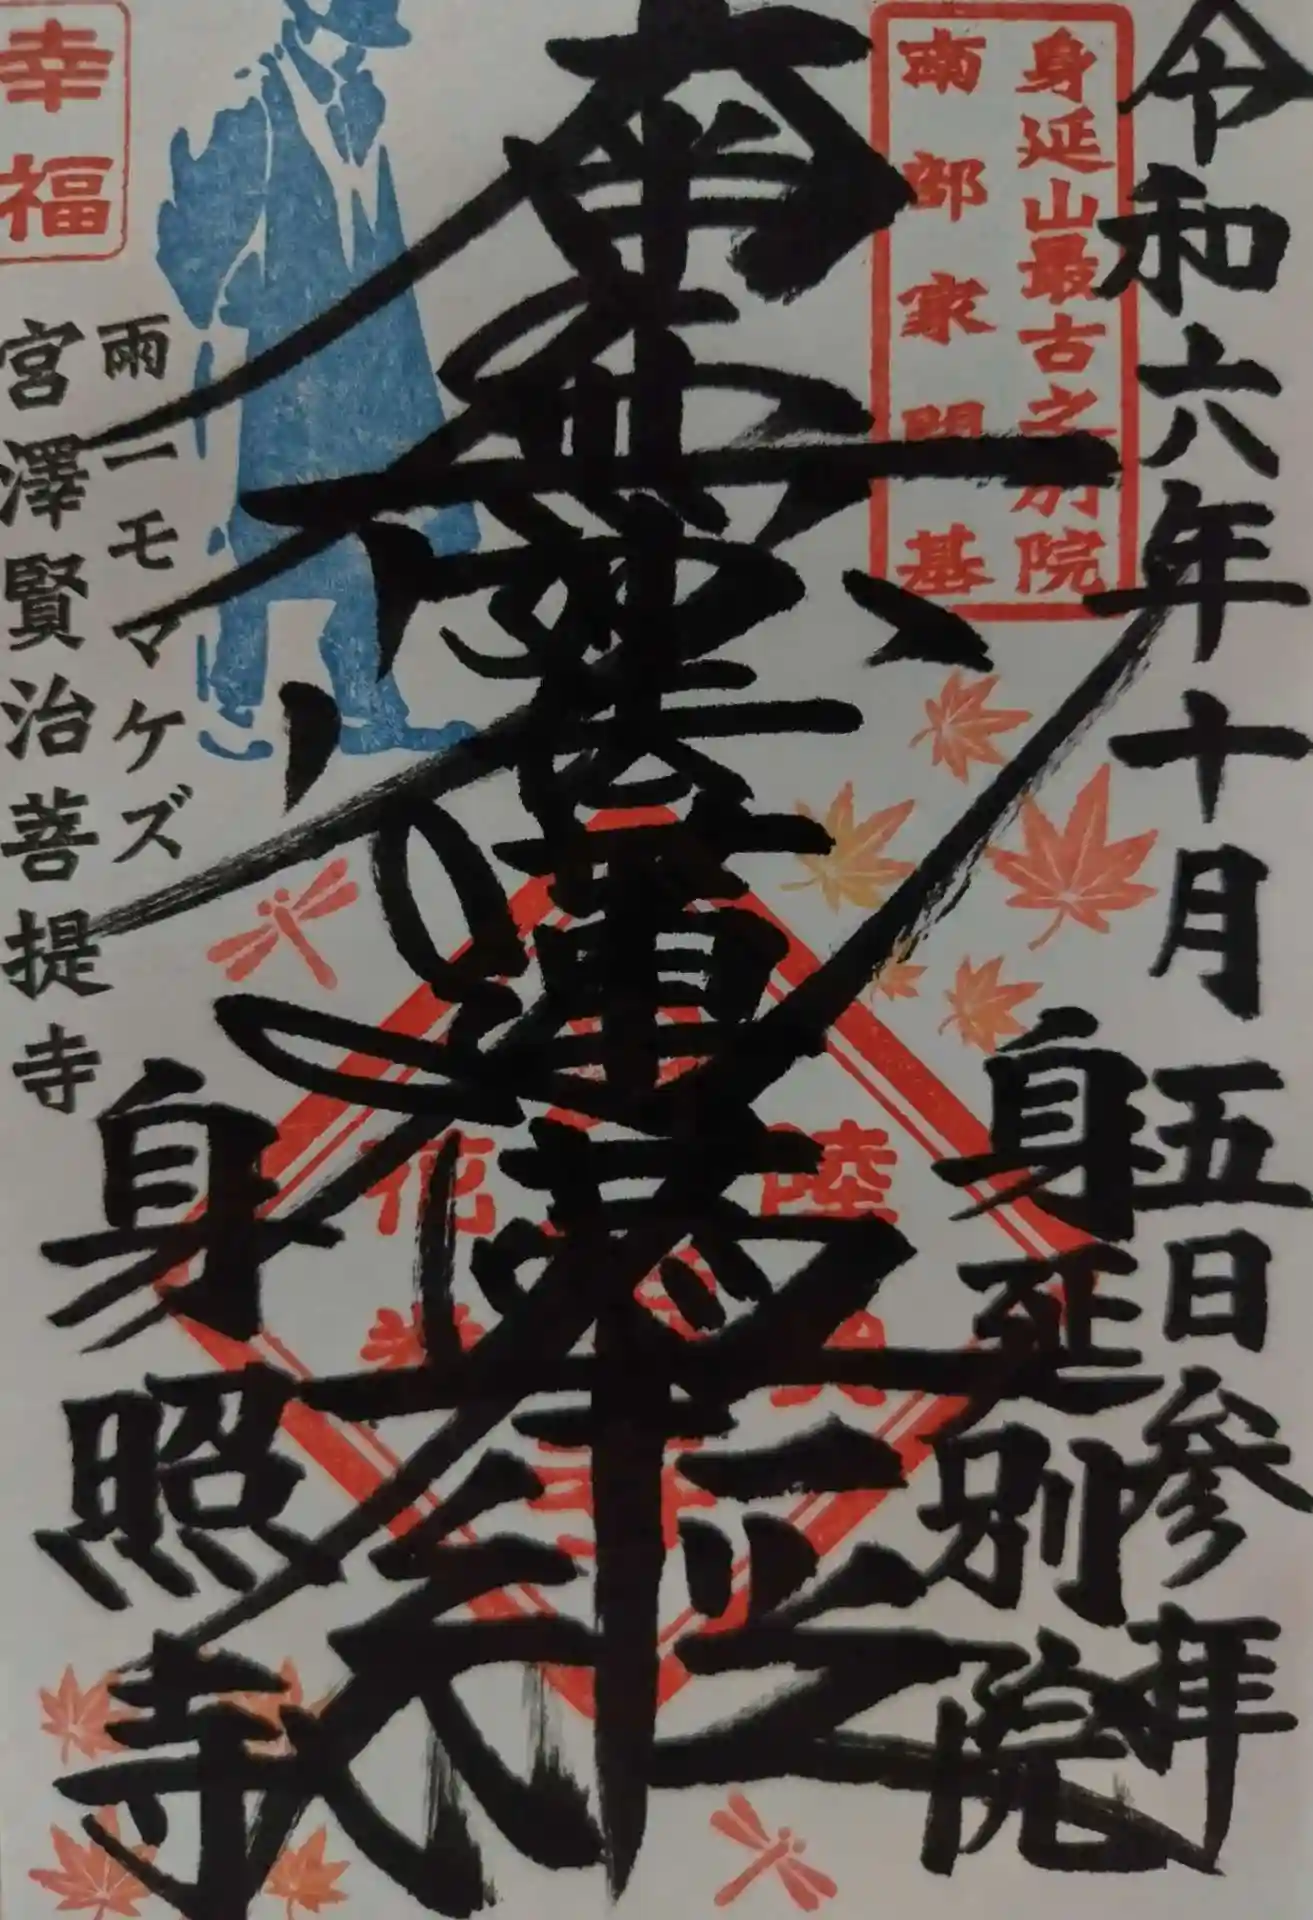 令和六年十月五日参拝
身延山最古之別院
南部家開基
身延別院
南無妙法蓮華経
陸
花
雨ニモマケズ
宮澤賢治菩提寺
幸福
身照寺